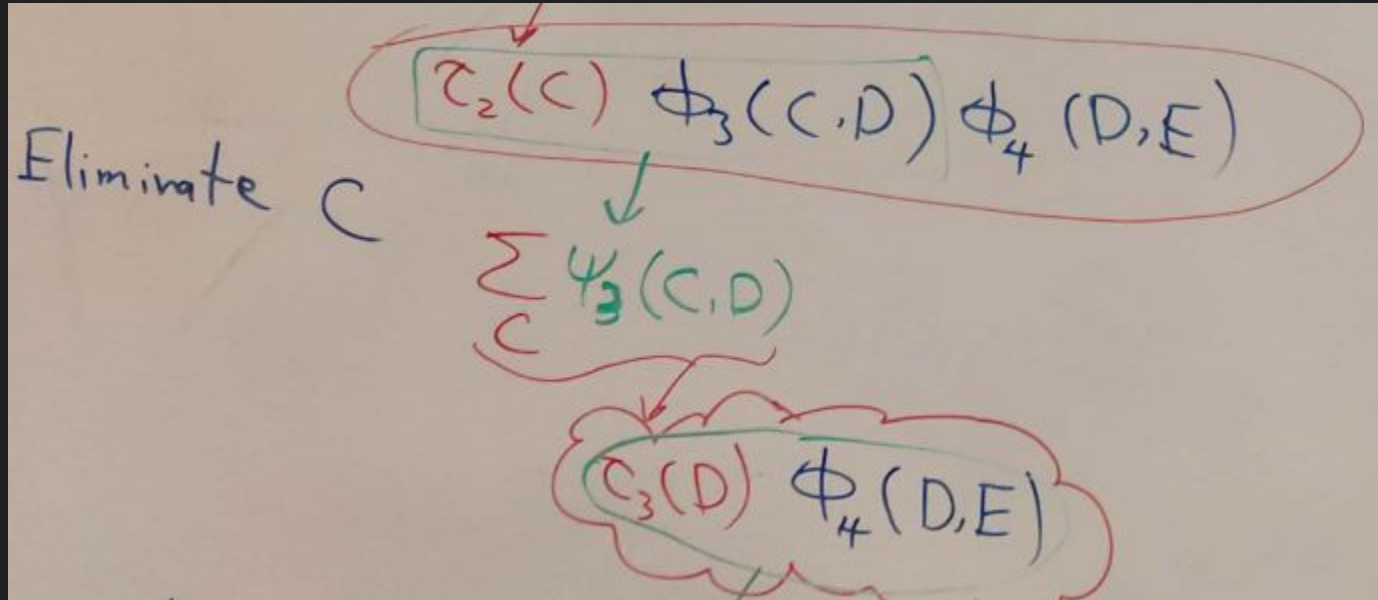 τ₂(C) ϕ₃(C,D) ϕ₄(D,E)
Eliminate C
∑ ψ₃(C,D)
C
τ₃(D) ϕ₄(D,E)